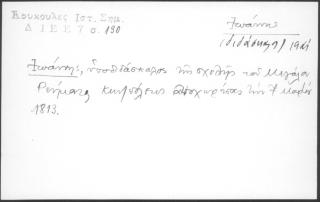 Κουκουλες Ιστ. Σημ.
Δ Ι Ε Ε 7 σ. 130
Ιωάννης
διδάσκαλος
Ιωάννης, ὑποδιδάσκαλος τῆς σχολῆς τοῦ Μεγάλου
Ρεύματος Κωνπόλεως ἀποχωρήσας τὴν 7 Μαρτ
1813.